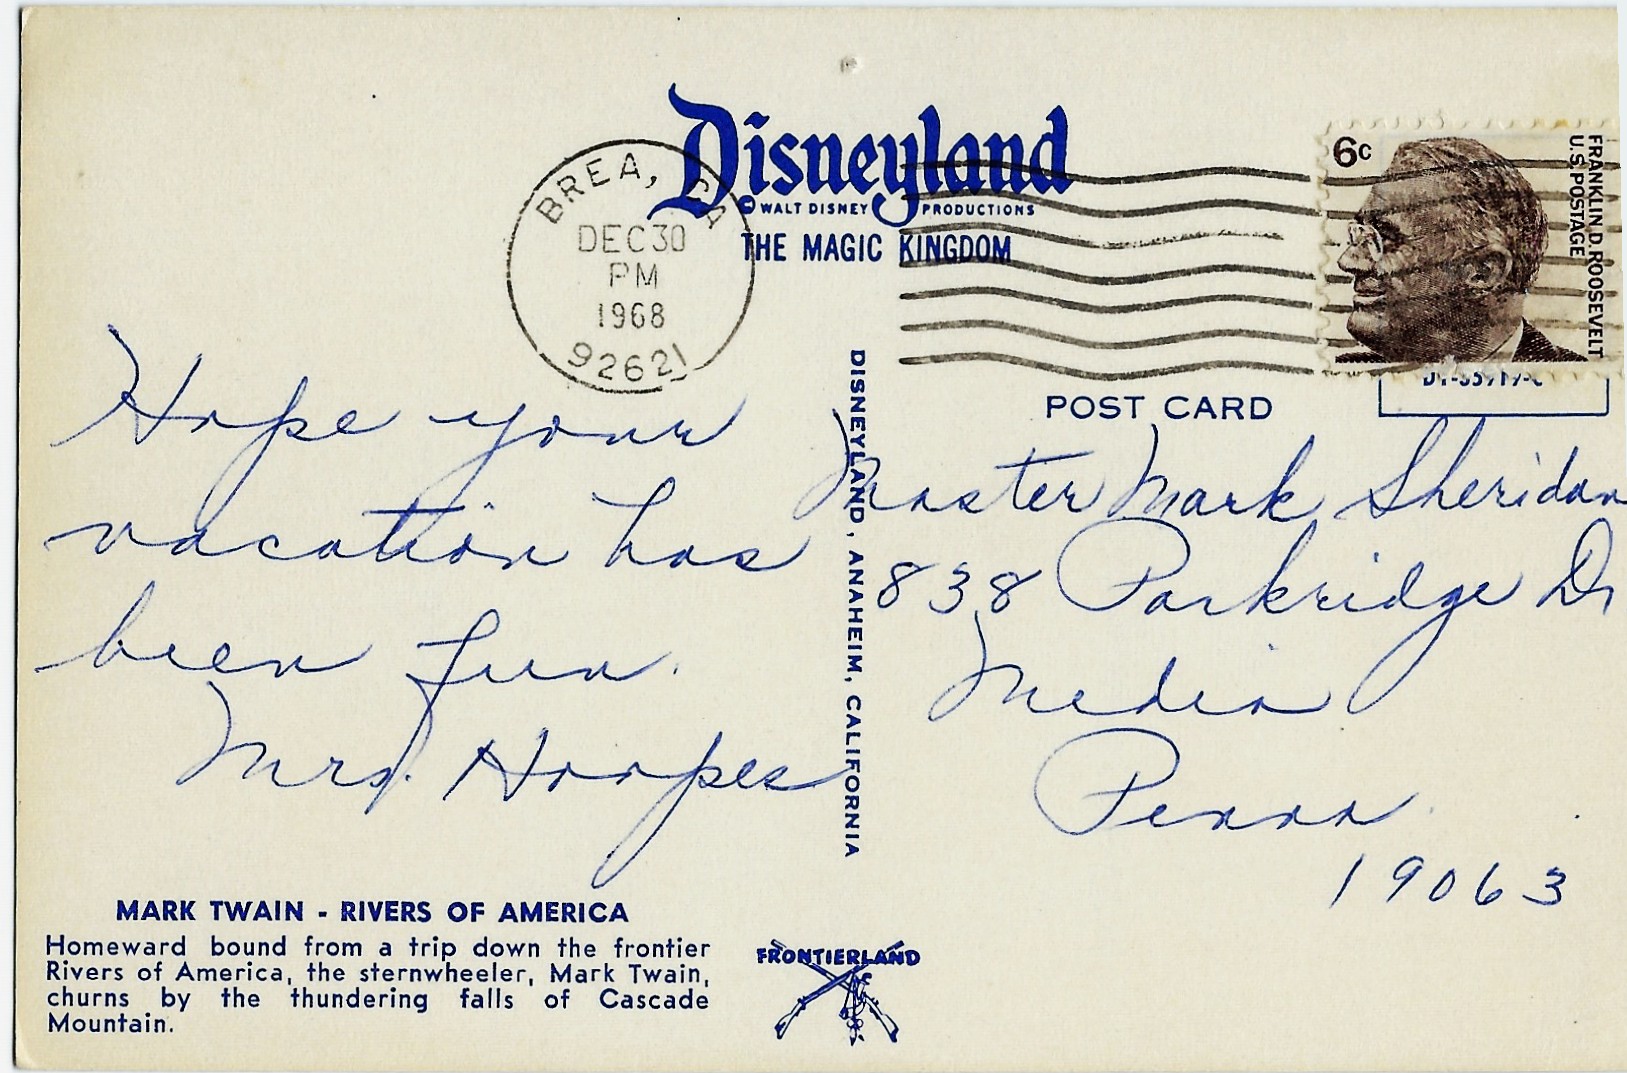 Disneyland
© WALT DISNEY PRODUCTIONS
THE MAGIC KINGDOM
BREA, CA
DEC 30
PM
1968
92621
6c
FRANKLIN D. ROOSEVELT
U.S. POSTAGE
POST CARD
Hope your
vacation has
been fun.
Mrs. Hoopes
DISNEYLAND, ANAHEIM, CALIFORNIA
Master Mark Sheridan
838 Parkridge Dr
Media
Penna.
19063
MARK TWAIN - RIVERS OF AMERICA
Homeward bound from a trip down the frontier
Rivers of America, the sternwheeler, Mark Twain,
churns by the thundering falls of Cascade
Mountain.
FRONTIERLAND